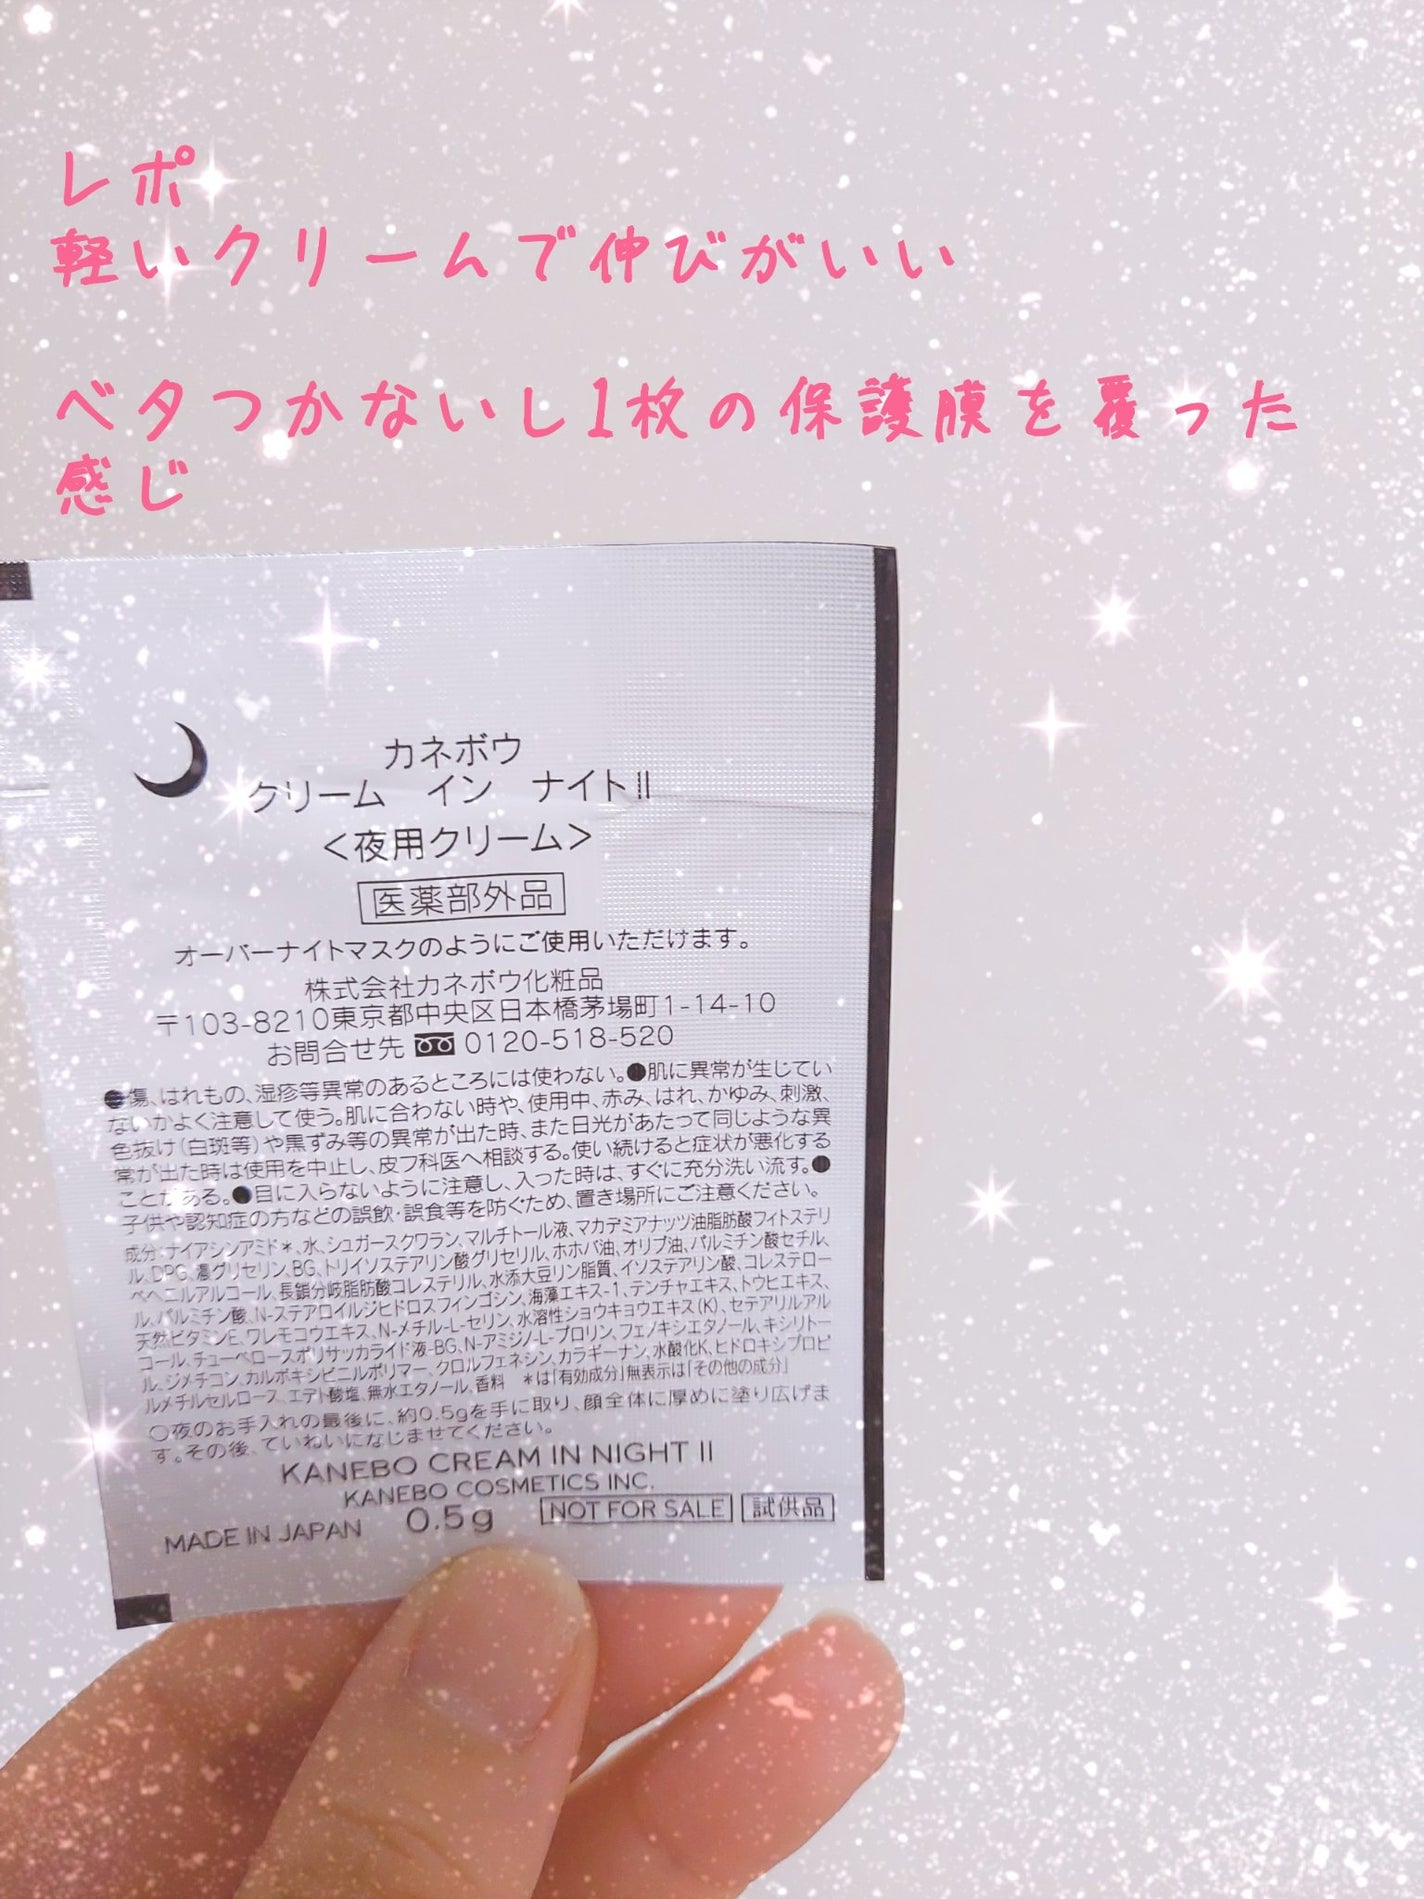 レポ
軽いクリームで伸びがいい
ベタつかないし1枚の保護膜を覆った
感じ
カネボウ
クリーム イン ナイトII
<夜用クリーム>
医薬部外品
オーバーナイトマスクのようにご使用いただけます。
株式会社カネボウ化粧品
〒103-8210東京都中央区日本橋茅場町1-14-10
お問合せ先 0120-518-520
●傷、はれもの、湿疹等異常のあるところには使わない。●肌に異常が生じてい
ないかよく注意して使う。肌に合わない時や、使用中、赤み、はれ、かゆみ、刺激、
色抜け(白斑等)や黒ずみ等の異常が出た時、また日光があたって同じような異
常が出た時は使用を中止し、皮フ科医へ相談する。使い続けると症状が悪化する
ことがある。●目に入らないように注意し、入った時は、すぐに充分洗い流す。●
子供や認知症の方などの誤飲・誤食等を防ぐため、置き場所にご注意ください。
成分:ナイアシンアミド*、水、シュガースクワラン、マルチトール液、マカデミアナッツ油脂肪酸フイトステリ
ル、DPG、濃グリセリン、BG、トリイソステアリン酸グリセリル、ホホバ油、オリブ油、パルミチン酸セチル、
ベヘニルアルコール、長鎖分岐脂肪酸コレステリル、水添大豆リン脂質、イソステアリン酸、コレステロー
ル、パルミチン酸、N-ステアロイルジヒドロスフィンゴシン、海藻エキス-1、テンチャエキス、トウヒエキス、
天然ビタミンE、ワレモコウエキス、N-メチル-L-セリン、水溶性ショウキョウエキス(K)、セテアリルアル
コール、チューベロースポリサッカライド液-BG、N-アミジノ-L-プロリン、フェノキシエタノール、キシリトー
ル、ジメチコン、カルボキシビニルポリマー、クロルフェネシン、カラギーナン、水酸化K、ヒドロキシプロピ
ルメチルセルロース、エデト酸塩、無水エタノール、香料 *は「有効成分」無表示は「その他の成分」
○夜のお手入れの最後に、約0.5gを手に取り、顔全体に厚めに塗り広げま
す。その後、ていねいになじませてください。
KANEBO CREAM IN NIGHT II
KANEBO COSMETICS INC.
MADE IN JAPAN 0.5g NOT FOR SALE 試供品